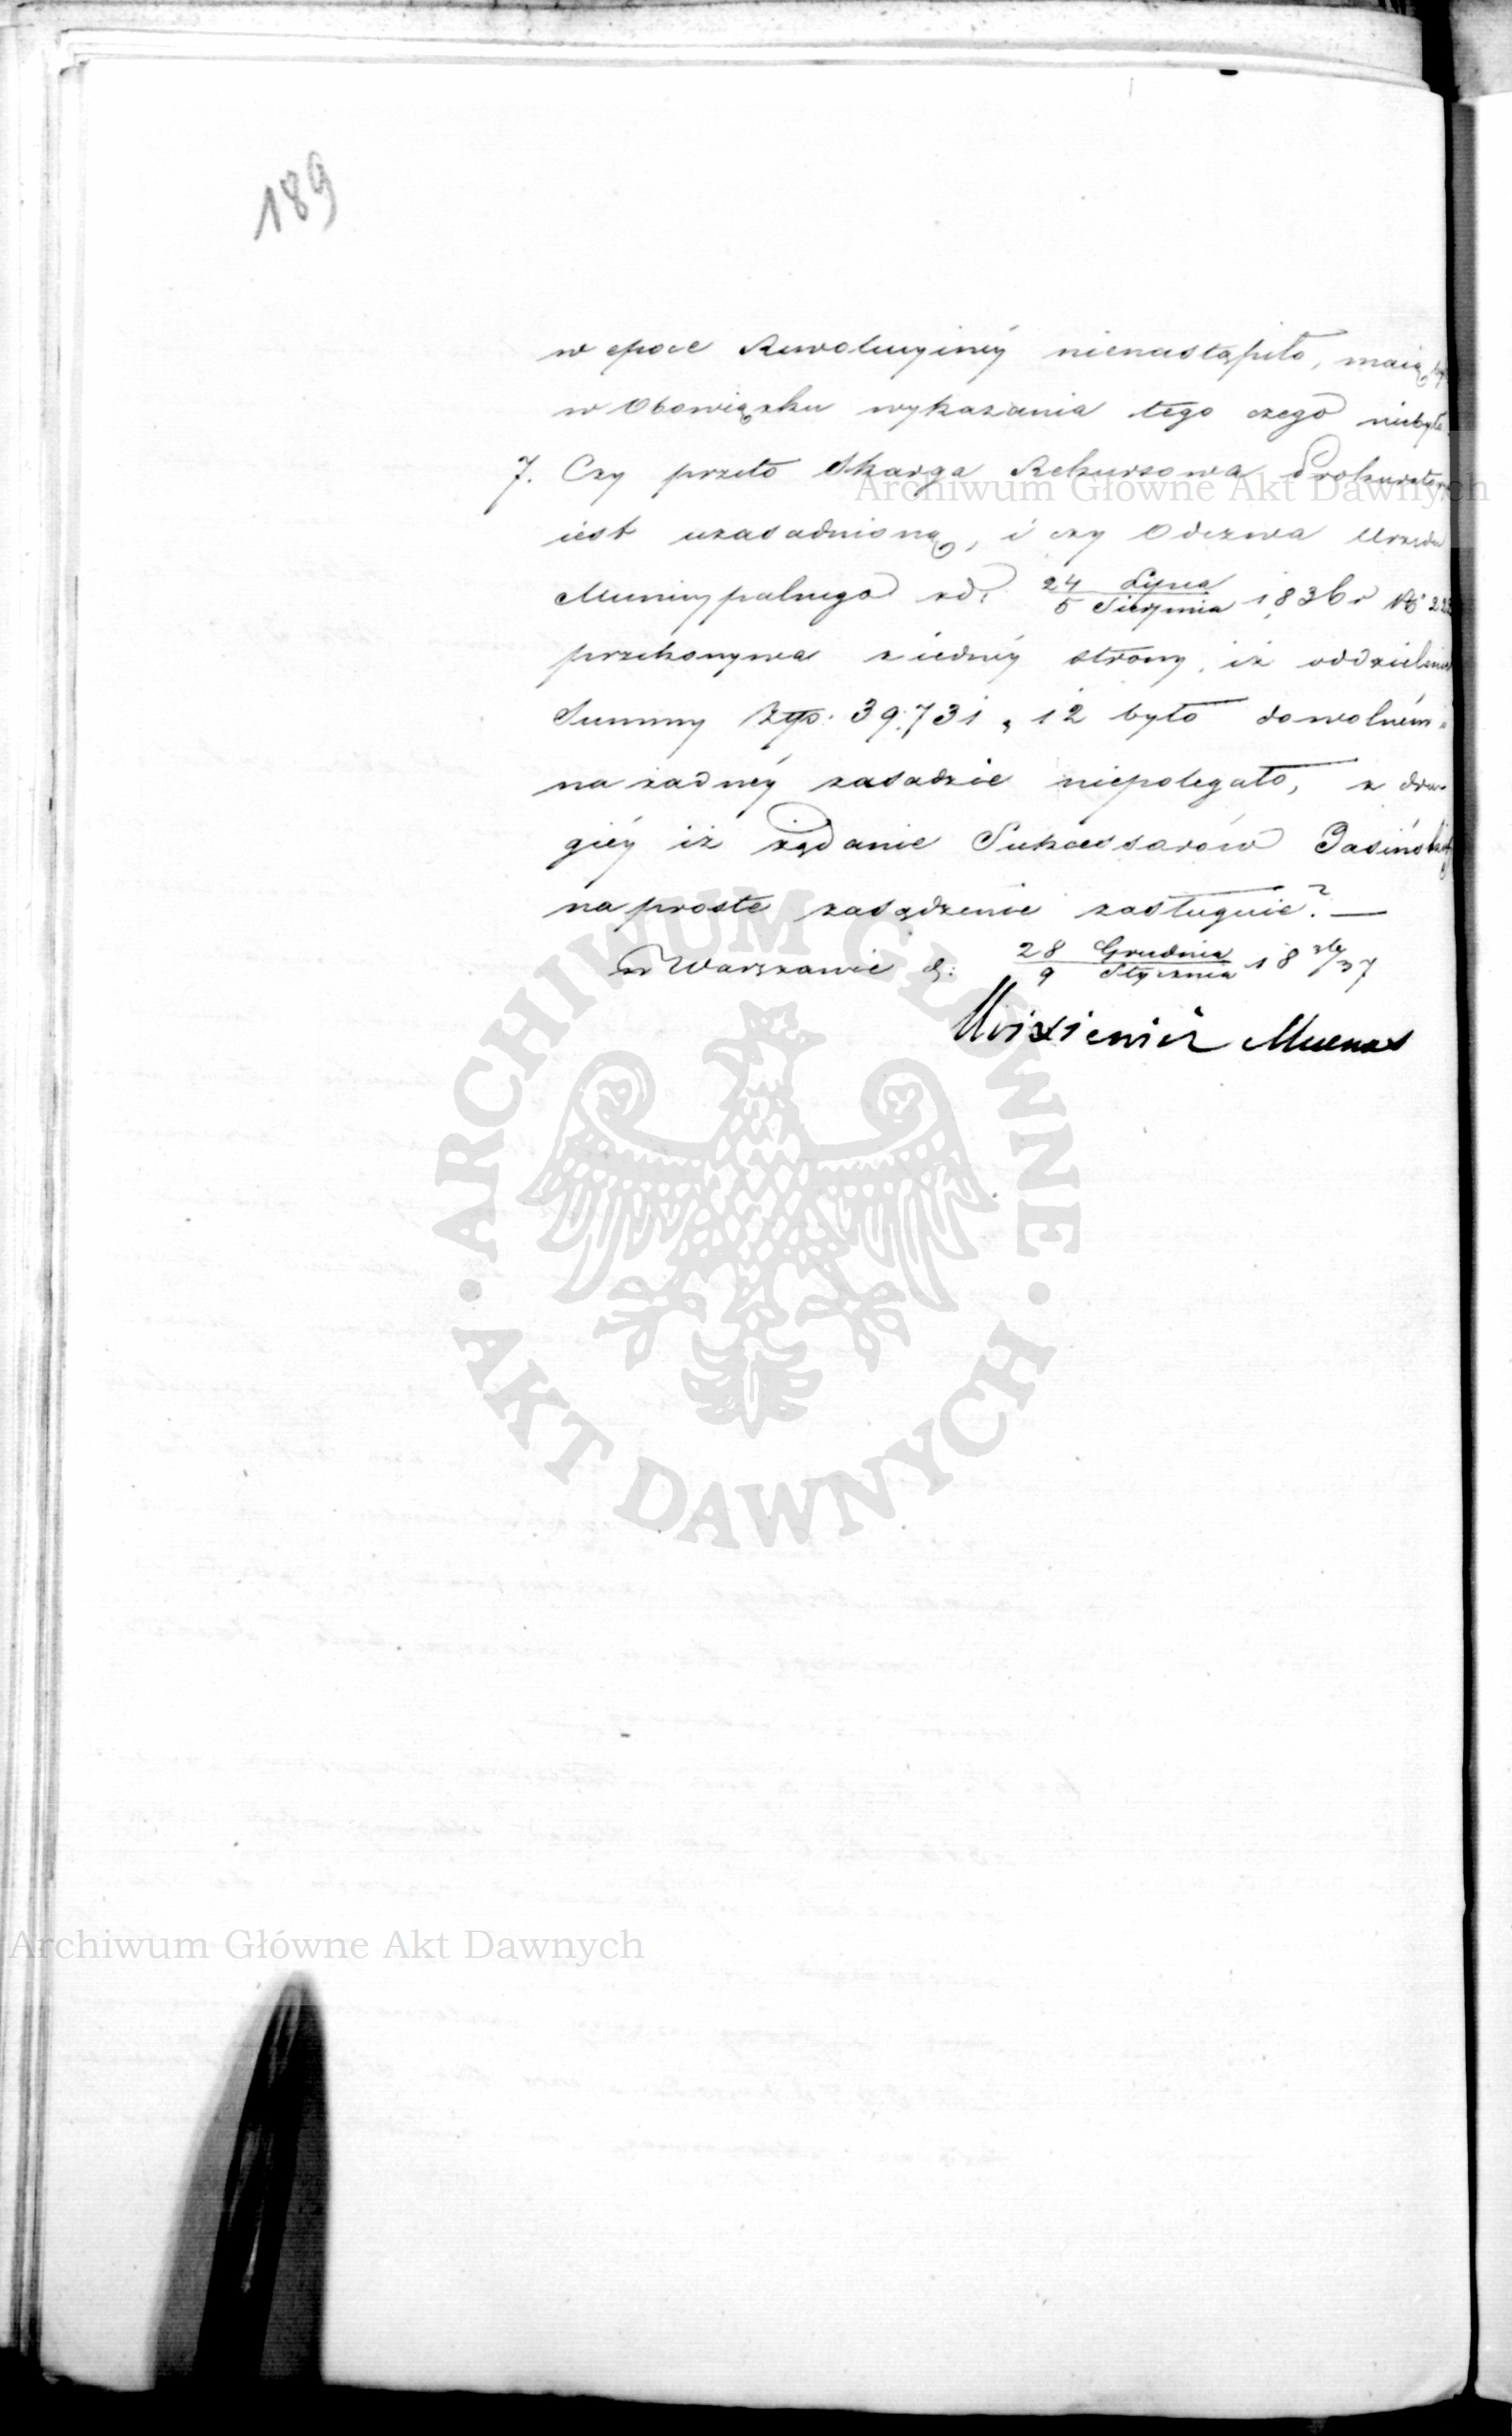 189
w epoce Rewolucyinéy nienastąpiło, maią być
w Obowiązku wykazania tego czego niebyło.
7. Czy przeto Skarga Rekursowa Prokuratora
iest uzasadnioną, i czy Odezwa Urzędu
Municypalnego z d: 24 Lipca / 5 Sierpnia 1836 r No
przekonywa z iednéy strony, iż oddzielenie
Summy Złp: 39,731 12 było dowolném i
na żadnéy zasadzie niepolegało, z dru-
giéy iż żądanie Sukcessorów Jasińskich
na proste zasądzenie zasługuie? —
w Warszawie d: 28 Grudnia / 9 Stycznia 18 36/37
Archiwum Główne Akt Dawnych
ARCHIWUM GŁÓWNE
· AKT DAWNYCH ·
Archiwum Główne Akt Dawnych